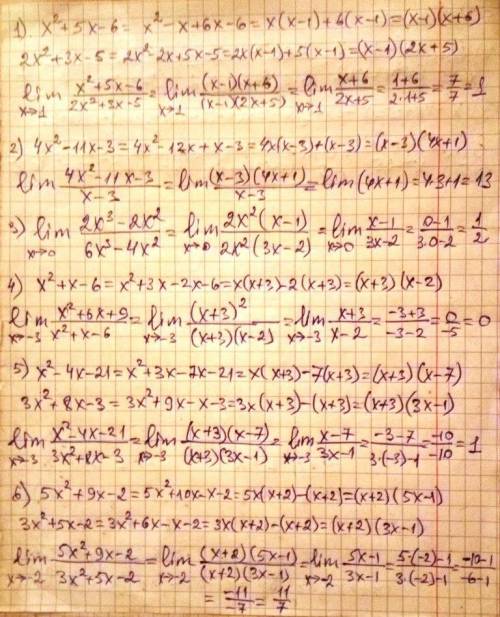 1). x²+5x-6= x²-x+6x-6=x(x-1)+6(x-1)=(x-1)(x+6)
2x²+3x-5=2x²-2x+5x-5=2x(x-1)+5(x-1)=(x-1)(2x+5)
lim x→1 (x²+5x-6)/(2x²+3x-5) = lim x→1 ((x-1)(x+6))/((x-1)(2x+5)) = lim x→1 (x+6)/(2x+5) = (1+6)/(2·1+5) = 7/7 = 1
2) 4x²-11x-3=4x²-12x+x-3=4x(x-3)+(x-3)=(x-3)(4x+1).
lim (4x²-11x-3)/(x-3) = lim ((x-3)(4x+1))/(x-3) = lim(4x+1)=4·3+1=13
3) lim x→0 (2x³-2x²)/(6x³-4x²) = lim x→0 (2x²(x-1))/(2x²(3x-2)) = lim x→0 (x-1)/(3x-2) = (0-1)/(3·0-2) = 1/2
4) x²+x-6=x²+3x-2x-6=x(x+3)-2(x+3)=(x+3)(x-2)
lim x→-3 (x²+6x+9)/(x²+x-6) = lim x→-3 (x+3)²/((x+3)(x-2)) = lim x→-3 (x+3)/(x-2) = (-3+3)/(-3-2) = 0/-5 = 0
5) x²-4x-21=x²+3x-7x-21=x(x+3)-7(x+3)=(x+3)(x-7)
3x²+8x-3=3x²+9x-x-3=3x(x+3)-(x+3)=(x+3)(3x-1)
lim x→-3 (x²-4x-21)/(3x²+8x-3) = lim x→-3 ((x+3)(x-7))/((x+3)(3x-1)) = lim x→-3 (x-7)/(3x-1) = (-3-7)/(3·(-3)-1) = -10/-10 = 1
6) 5x²+9x-2=5x²+10x-x-2=5x(x+2)-(x+2)=(x+2)(5x-1)
3x²+5x-2=3x²+6x-x-2=3x(x+2)-(x+2)=(x+2)(3x-1)
lim x→-2 (5x²+9x-2)/(3x²+5x-2) = lim x→-2 ((x+2)(5x-1))/((x+2)(3x-1)) = lim x→-2 (5x-1)/(3x-1) = (5·(-2)-1)/(3·(-2)-1) = (-10-1)/(-6-1)
= -11/-7 = 11/7